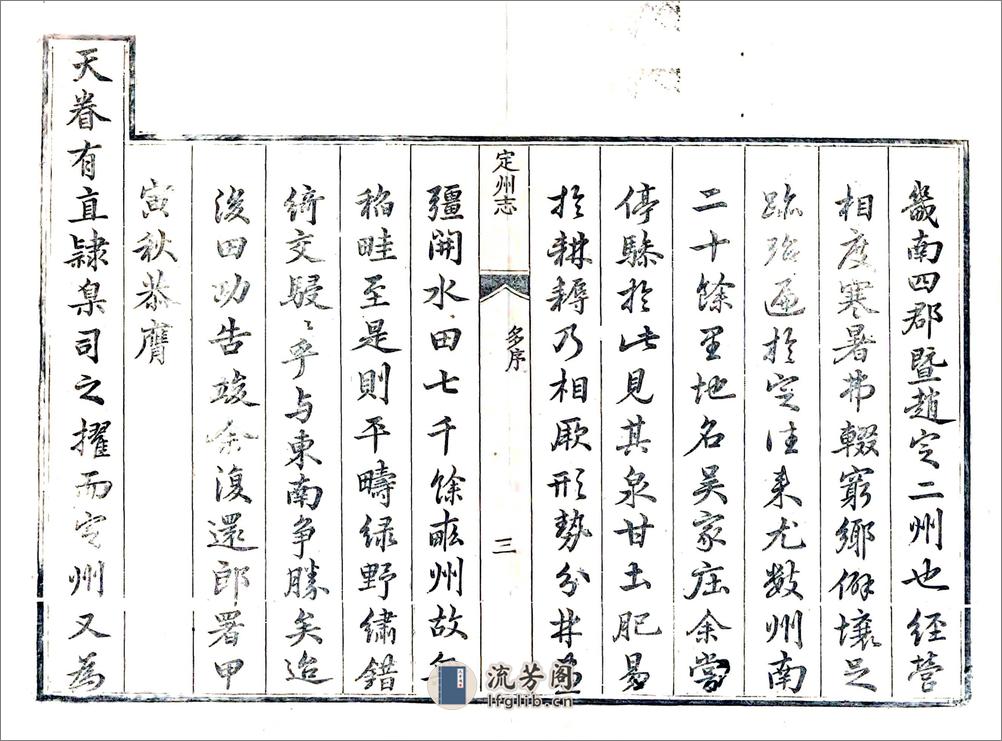 畿南四郡暨趙定二州也經營
相度寒暑弗輟窮鄉僻壤足
跡殆遍於定往来尤數州南
二十餘里地名吴家庄余嘗
停驂於此見其泉甘土肥易
於耕耨乃相厥形勢分井
定州志
多序
三
疆開水田七千餘畝州故無
稻畦至是則平疇绿野繡錯
綺交駸〻乎与東南争勝矣迨
後田功告竣余復還郎署甲
寅秋恭膺
天眷有直隸臬司之擢而定州又為
流芳阁
lfglib.cn